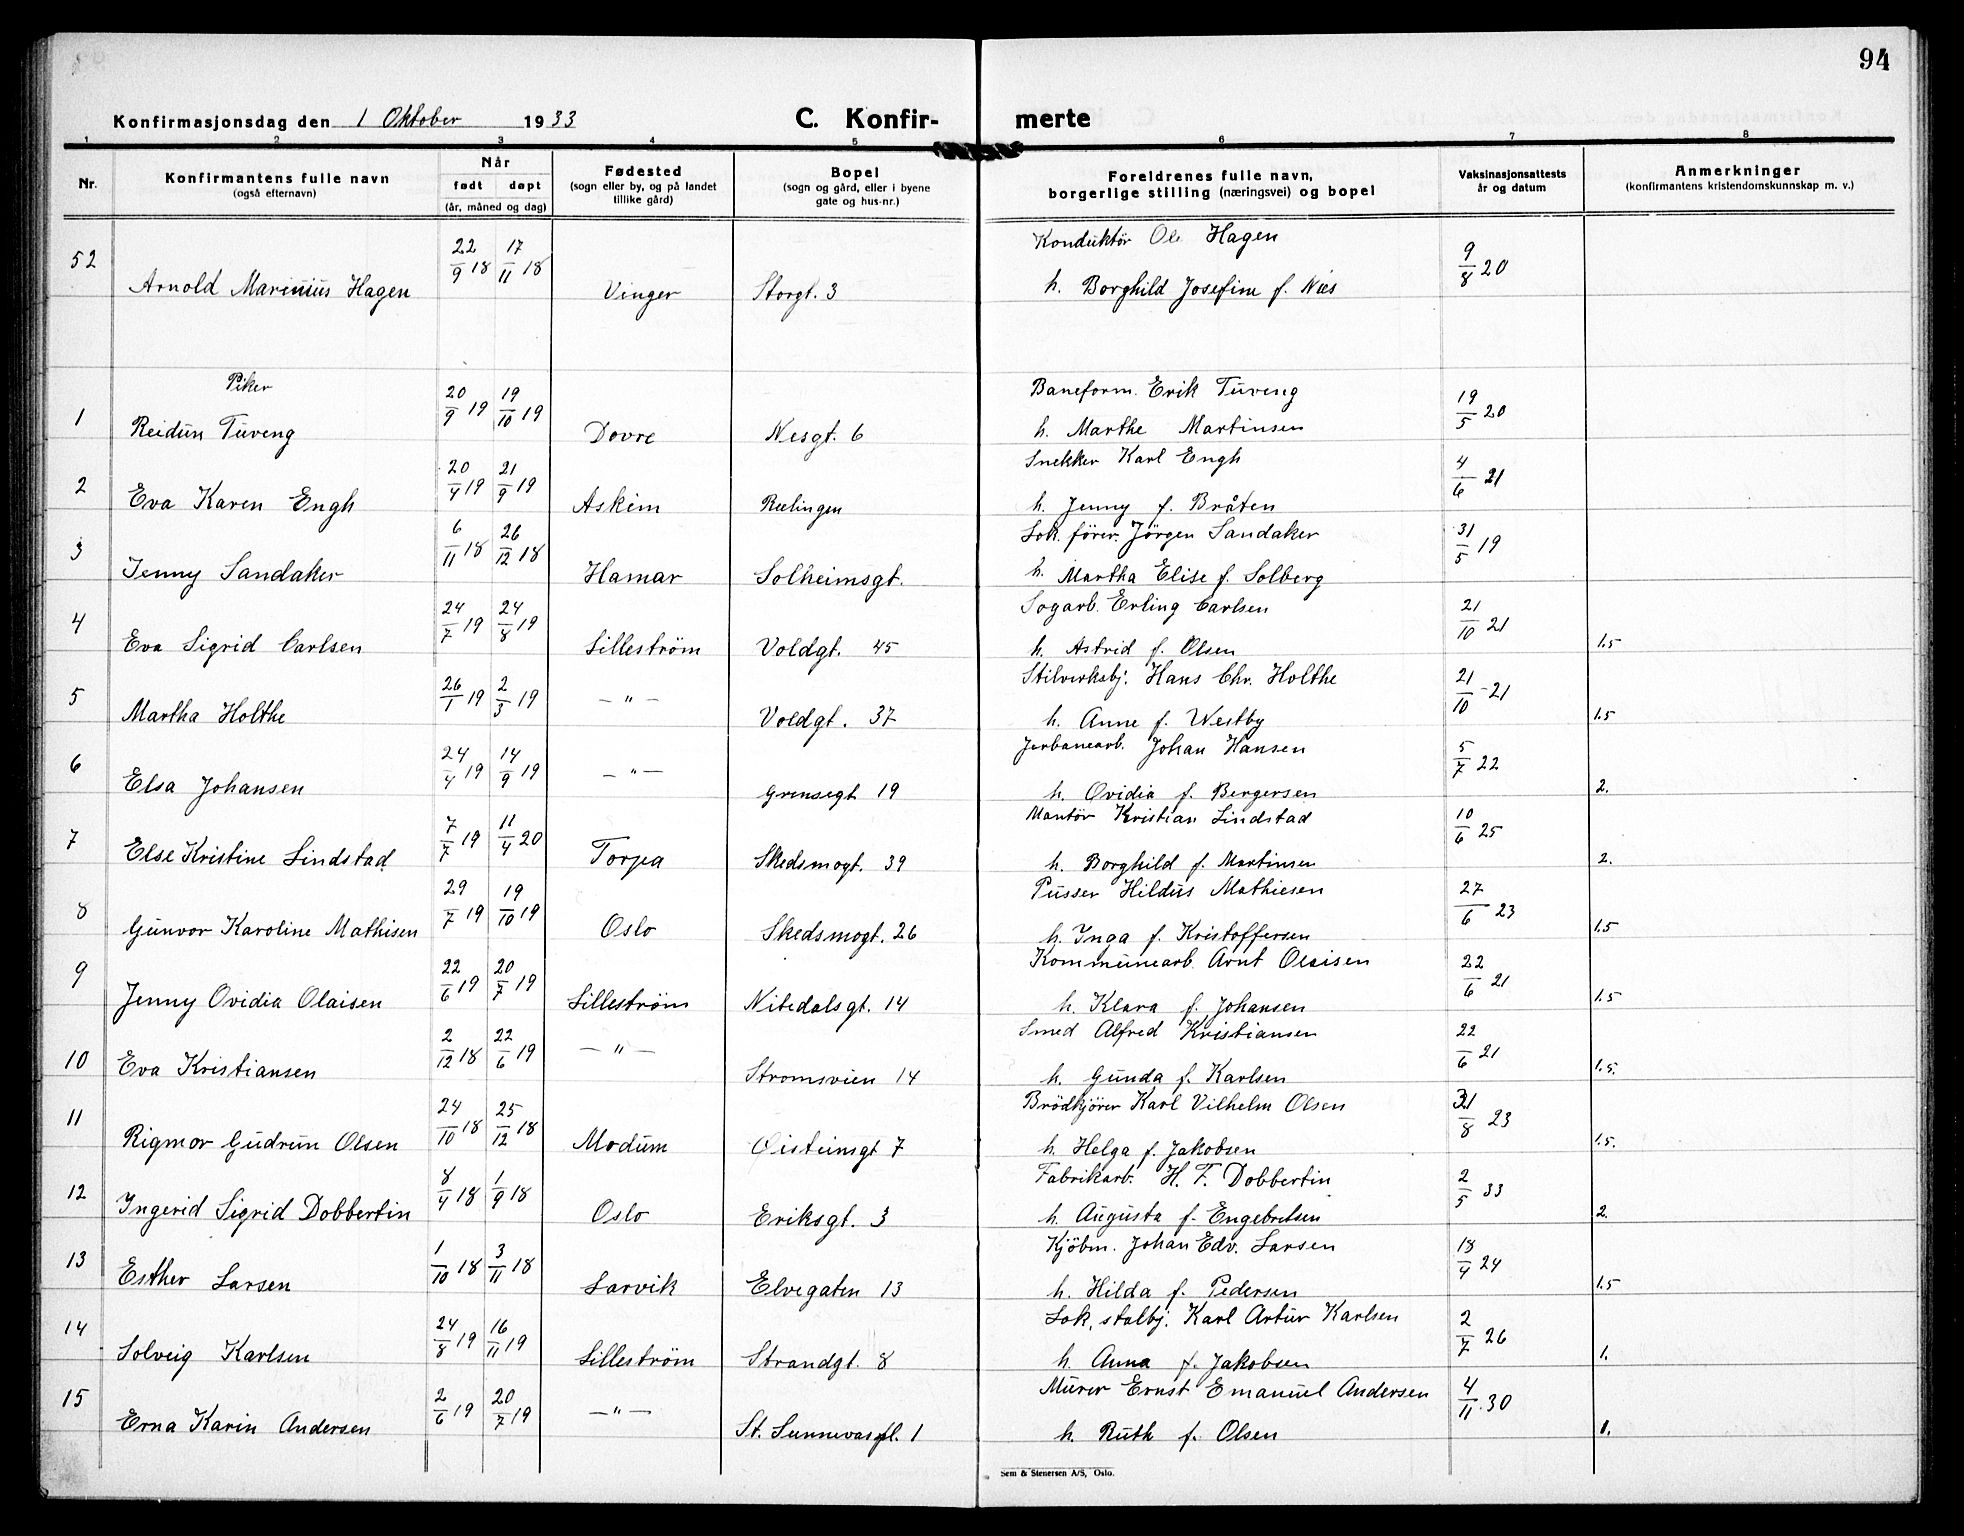 94
Konfirmasjonsdag den 1 Oktober 1933 C. Konfir- merte
1 2 3 4 5 6 7 8
Nr. Konfirmantens fulle navn (også efternavn) Når født døpt (år, måned og dag) Fødested (sogn eller by, og på landet tillike gård) Bopel (sogn og gård, eller i byene gate og hus-nr.) Foreldrenes fulle navn, borgerlige stilling (næringsvei) og bopel Vaksinasjonsattests år og datum Anmerkninger (konfirmantens kristendomskunnskap m. v.)
52 Arnold Marinius Hagen 22/9 18 17/11 18 Vinger Storgt. 3 Konduktör Ole Hagen 9/8 20
h. Borghild Josefine f. Næs
Piker
1 Reidun Tuveng 20/9 19 19/10 19 Dovre Nesgt. 6 Baneform. Erik Tuveng 19/5 20
h. Marthe Martinsen
2 Eva Karen Engh 20/4 19 21/9 19 Askim Rælingen Snekker Karl Engh 4/6 21
h. Jenny f. Bråten
3 Jenny Sandaker 6/11 18 26/12 18 Hamar Solheimsgt. Lok. förer. Jörgen Sandaker 31/5 19
h. Martha Elise f. Solberg
4 Eva Sigrid Carlsen 24/7 19 24/8 19 Lilleström Voldgt. 45 Sogarb. Erling Carlsen 21/10 21 1.5
h. Astrid f. Olsen
5 Martha Holthe 26/1 19 2/3 19 — " — Voldgt. 37 Stilverksbj. Hans Chr. Holthe 21/10 - 21 1.5
h. Anne f. Westby
6 Elsa Johansen 24/4 19 14/9 19 — " — Grensegt 19 Jerbanearb. Johan Hansen 5/7 22 2.
h. Ovidia f. Bergersen
7 Else Kristine Lindstad 7/7 19 11/4 20 Torpa Skedsmogt. 39 Montör Kristian Lindstad 10/6 25 2.
h. Borghild f. Martinsen
8 Gunvor Karoline Mathisen 29/7 19 19/10 19 Oslo Skedsmogt. 26 Pusser Hildus Mathiesen 27/6 23 1.5
h. Inga f. Kristoffersen
9 Jenny Ovidia Olaisen 22/6 19 20/7 19 Lilleström Nitedalsgt. 14 Kommunearb. Arnt Olaisen 22/6 21 1.5
h. Klara f. Johansen
10 Eva Kristiansen 2/12 18 22/6 19 — " — Stromsvien 14 Smed Alfred Kristiansen 22/6 21 1.5.
h. Gunda f. Karlsen
11 Rigmor Gudrun Olsen 24/10 18 25/12 18 Modum Øisteinsgt 7 Brödkjörer Karl Vilhelm Olsen 31/8 23 1.5.
h. Helga f. Jakobsen
12 Ingerid Sigrid Dobbertin 8/4 18 1/9 18 Oslo Eriksgt. 3 Fabrikarb. H. F. Dobbertin 2/5 33 2.
h. Augusta f. Engebretsen
13 Esther Larsen 1/10 18 3/11 18 Larvik Elvegaten 13 Kjöbm. Johan Edv. Larsen 18/4 24 1.5
h. Hilda f. Pedersen
14 Solveig Karlsen 24/8 19 16/11 19 Lilleström Strandgt. 8 Lok. stalbj. Karl Artur Karlsen 2/7 26 1.
h. Anna f. Jakobsen
15 Erna Karin Andersen 2/6 19 20/7 19 — " — St. Sunnevaspl. 1 Murer Ernst Emanuel Andersen 4/11. 30 1.
h. Ruth f. Olsen
Sem & Stenersen A/S, Oslo.